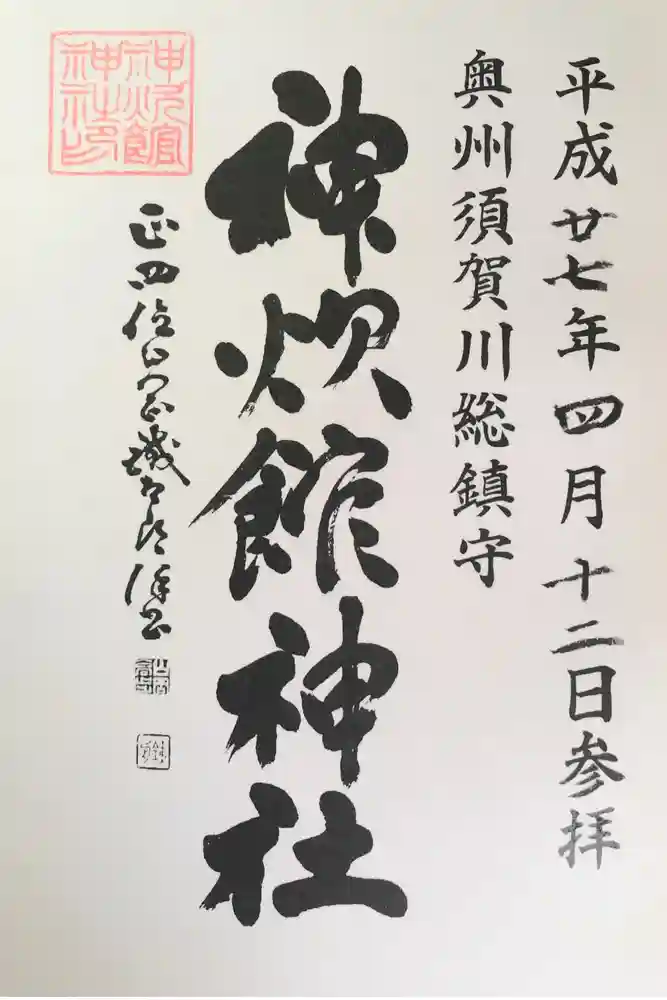 平成廿七年四月十二日参拝
奥州須賀川総鎮守
神炊館神社
神炊館
神社印
正四位